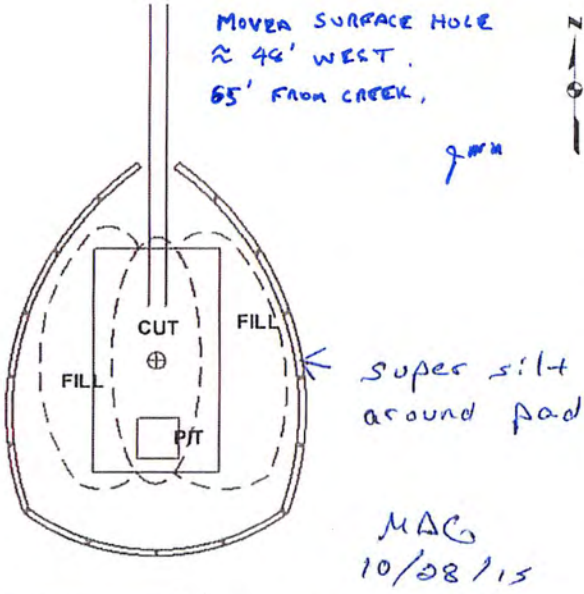 MOVED SURFACE HOLE
≈ 48' WEST.
65' FROM CREEK.
N
CUT
FILL
FILL
PIT
super silt
around pad
MAG
10/28/15